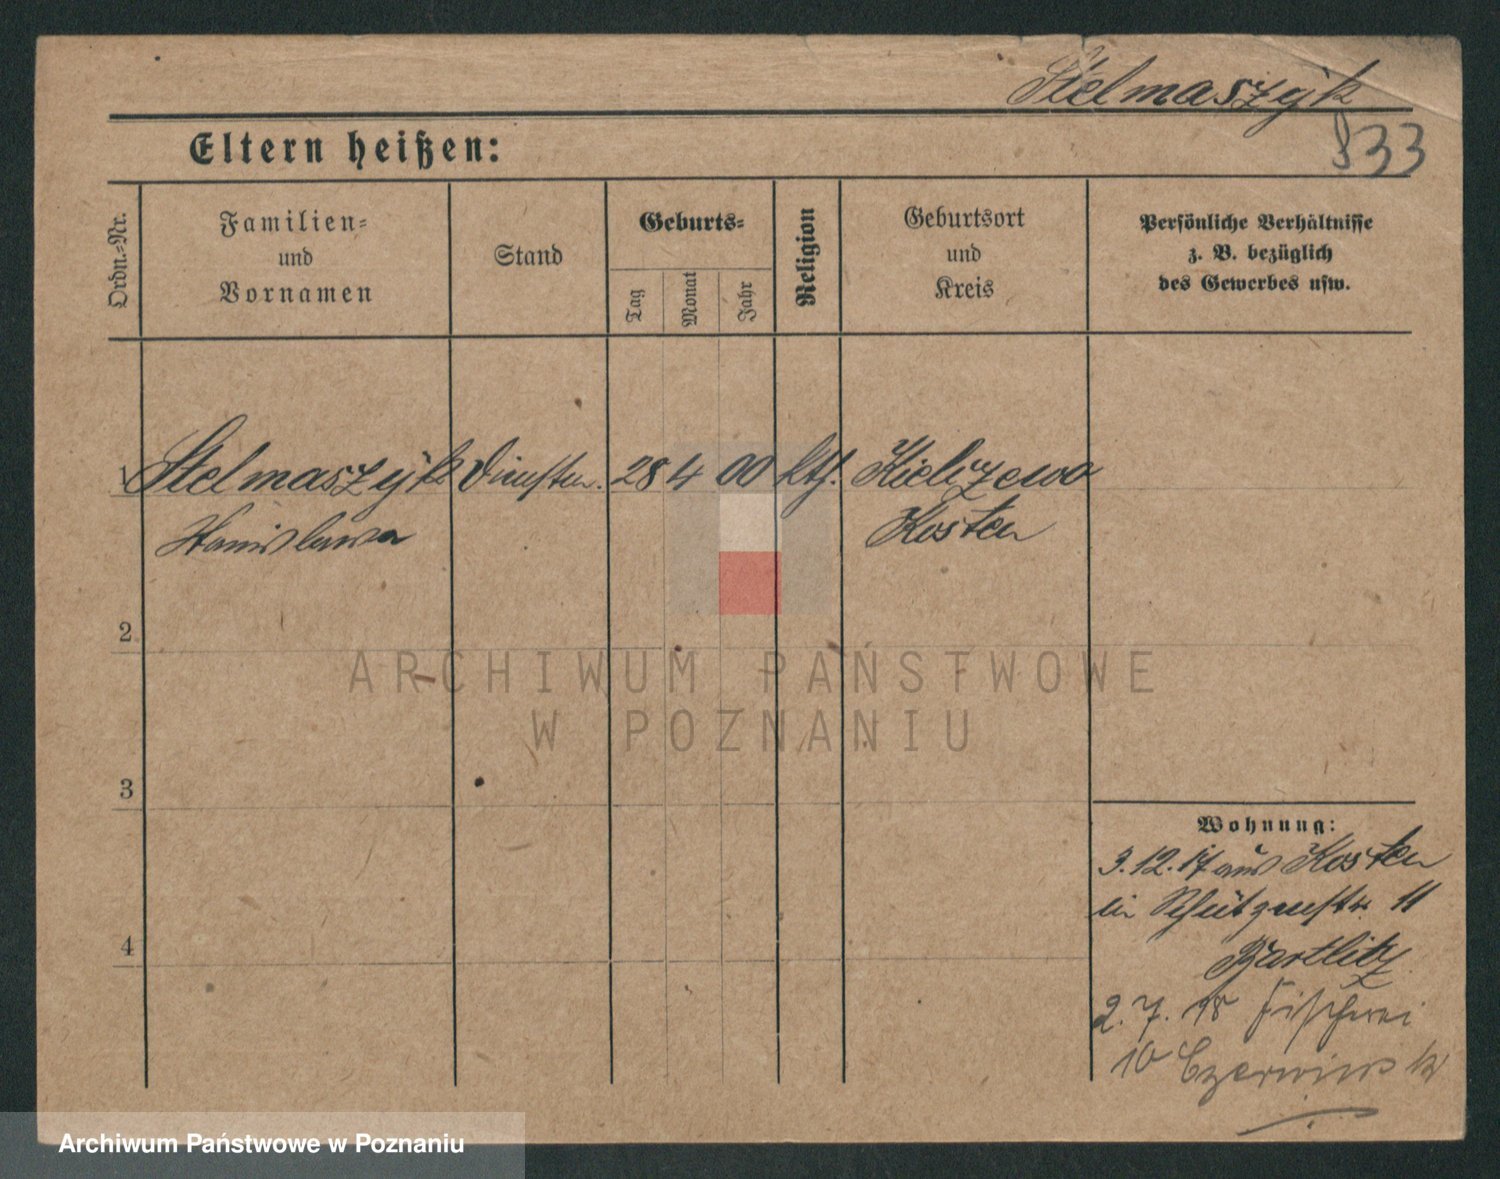 Stelmaszyk
833
Eltern heißen:
Ordn.-Nr.
Familien-
und
Vornamen
Stand
Geburts-
Tag
Monat
Jahr
Religion
Geburtsort
und
Kreis
Persönliche Verhältnisse
z. B. bezüglich
des Gewerbes usw.
1 Stelmaszyk Dienstm. 28 4 00 kth. Kielczewo
Stanislawa Kosten
2
ARCHIWUM PAŃSTWOWE
W POZNANIU
3
Wohnung:
3.12.17 aus Kosten
in Schützenstr. 11
Bartlitz
4
2.7.18 Fischerei
10 Czerwinski
Archiwum Państwowe w Poznaniu